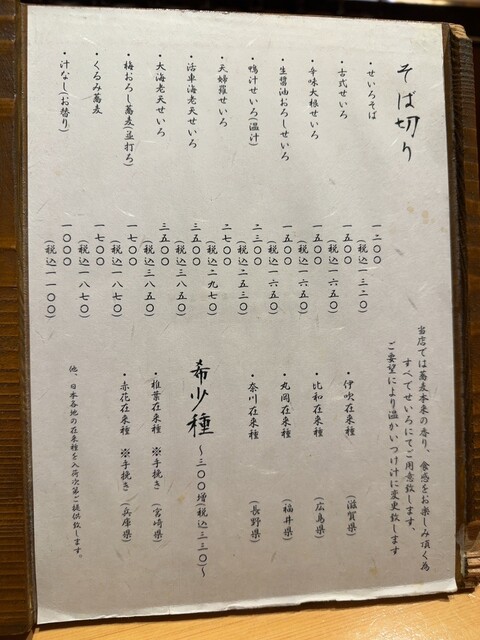 そば切り
・せいろそば 一二〇〇(税込一三二〇)
・古式せいろ 一五〇〇(税込一六五〇)
・辛味大根せいろ 一五〇〇(税込一六五〇)
・生醤油おろしせいろ 一五〇〇(税込一六五〇)
・鴨汁せいろ(温汁) 二三〇〇(税込二五三〇)
・天婦羅せいろ 二七〇〇(税込二九七〇)
・活車海老天せいろ 三五〇〇(税込三八五〇)
・大海老天せいろ 三五〇〇(税込三八五〇)
・梅おろし蕎麦(並打ち) 一七〇〇(税込一八七〇)
・くるみ蕎麦 一七〇〇(税込一八七〇)
・汁なし(お替り) 一〇〇〇(税込一一〇〇)
当店では蕎麦本来の香り、食感をお楽しみ頂く為
すべてせいろにてご用意致します。
ご要望により温かいつけ汁に変更致します
・伊吹在来種 (滋賀県)
・比和在来種 (広島県)
・丸岡在来種 (福井県)
・奈川在来種 (長野県)
希少種 ~三〇〇増(税込三三〇)~
・椎葉在来種 ※手挽き(宮崎県)
・赤花在来種 ※手挽き(兵庫県)
他、日本各地の在来種を入荷次第ご提供致します。